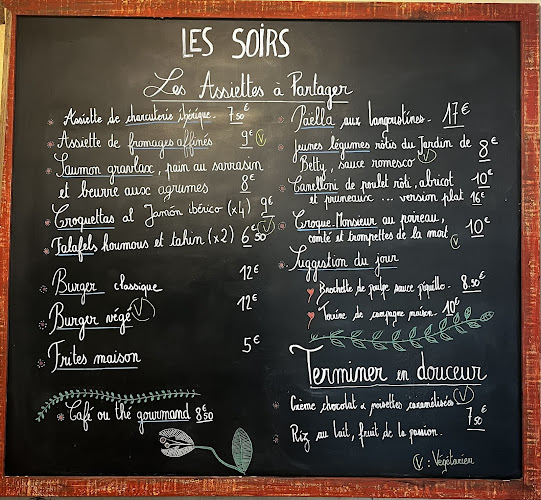 LES SOIRS
Les Assiettes à Partager
Assiette de charcuterie ibérique. 7.50€
Assiette de fromages affinés 9€ V
Saumon gravlax, pain au sarrasin
et beurre aux agrumes 8€
Croquettas al Jamón ibérico (x4) 9€
Falafels houmous et tahin (x2) 6€50 V
Burger classique 12€
Burger végé V 12€
Frites maison 5€
Café ou thé gourmand 8€50
Paëlla aux langoustines. 17€
Jeunes légumes rôtis du Jardin de
Betty, sauce romesco V 8€
Canelloni de poulet rôti, abricot 10€
et pruneaux ... version plat 16€
Croque-Monsieur au poireau,
comté et trompettes de la mort V 10€
Suggestion du jour
Brochette de poulpe sauce piquillo. 8.50€
Terrine de campagne maison. 10€
Terminer en douceur
Crème chocolat & noisettes caramélisées V
7€50
Riz au lait, fruit de la passion.
V : Végétarien